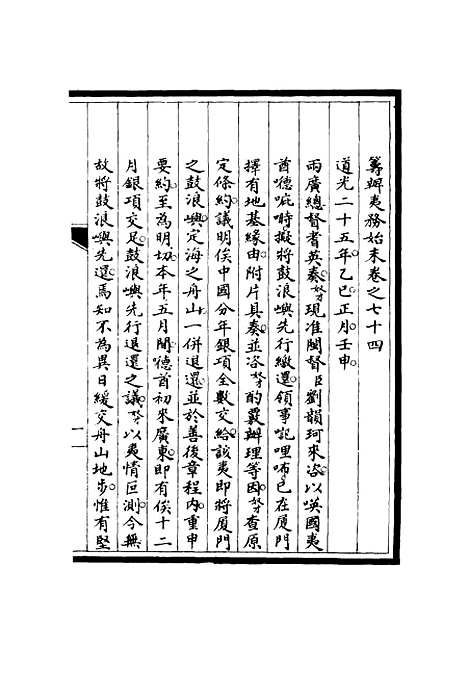 籌辦夷務始末卷之七十四
道光二十五年乙巳正月壬申
兩廣總督耆英奏奴才現准閩督臣劉韻珂來咨以㖟國夷
酋德呢時擬將鼓浪嶼先行繳還領事記哩布已在厦門
擇有地基緣由附片具奏並咨奴才酌覈辦理等因奴才查原
定條約議明俟中國分年銀項全數交給該夷即將厦門
之鼓浪嶼定海之舟山一併退還並於善後章程內重申
要約至為明切本年五月間德酋初來廣東即有俟十二
月銀項交足鼓浪嶼先行退還之議奴才以夷情叵測今無
故將鼓浪嶼先還焉知不為異日緩交舟山地步惟有堅
一